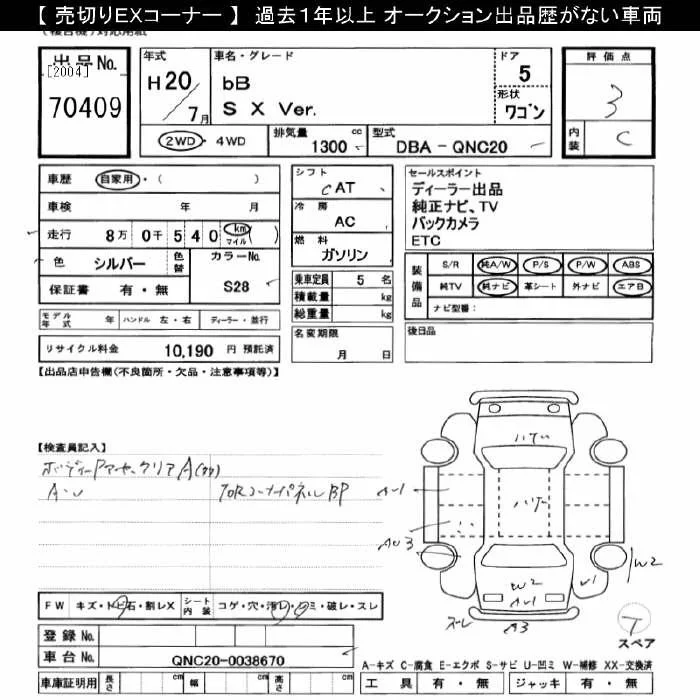 【 売切りEXコーナー 】 過去1年以上 オークション出品歴がない車両
出品No.
[2004]
70409
年式
H20/7月
車名・グレード
bB
S X Ver.
ドア
5
形状
ワゴン
2WD・4WD
排気量
1300 cc
型式
DBA - QNC20
評価点
3
内装
C
車歴 自家用・( )
車検 年 月
走行 8万 0千 5 4 0 (km マイル)
色 シルバー 色替 カラーNo.
保証書 有・無 S28
シフト
AT
冷房
AC
燃料
ガソリン
乗車定員 5 名
積載量 kg
総重量 kg
セールスポイント
ディーラー出品
純正ナビ、TV
バックカメラ
ETC
装備品
S/R 純A/W P/S P/W ABS
純TV 純ナビ 革シート 外ナビ エアB
ナビ型番:
モデル年式 年 ハンドル 左・右 ディーラー・並行
名変期限
月 日
後日品
リサイクル料金 10,190 円 預託済
【出品店申告欄(不良箇所・欠品・注意事項等)】
【検査員記入】
A・U
FW キズ・トビ石・割レX シート内装 コゲ・穴・汚レ・シミ・破レ・スレ
登録 No.
車台 No. QNC20-0038670
車庫証明用 長さ cm 幅 cm 高さ cm
ハゲ
ハゲ
AU1
AU3
W2
AU1
W1
W2
スレ
A3
T
スペア
A-キズ C-腐食 E-エクボ S-サビ U-凹ミ W-補修 XX-交換済
工具 有・無 ジャッキ 有・無